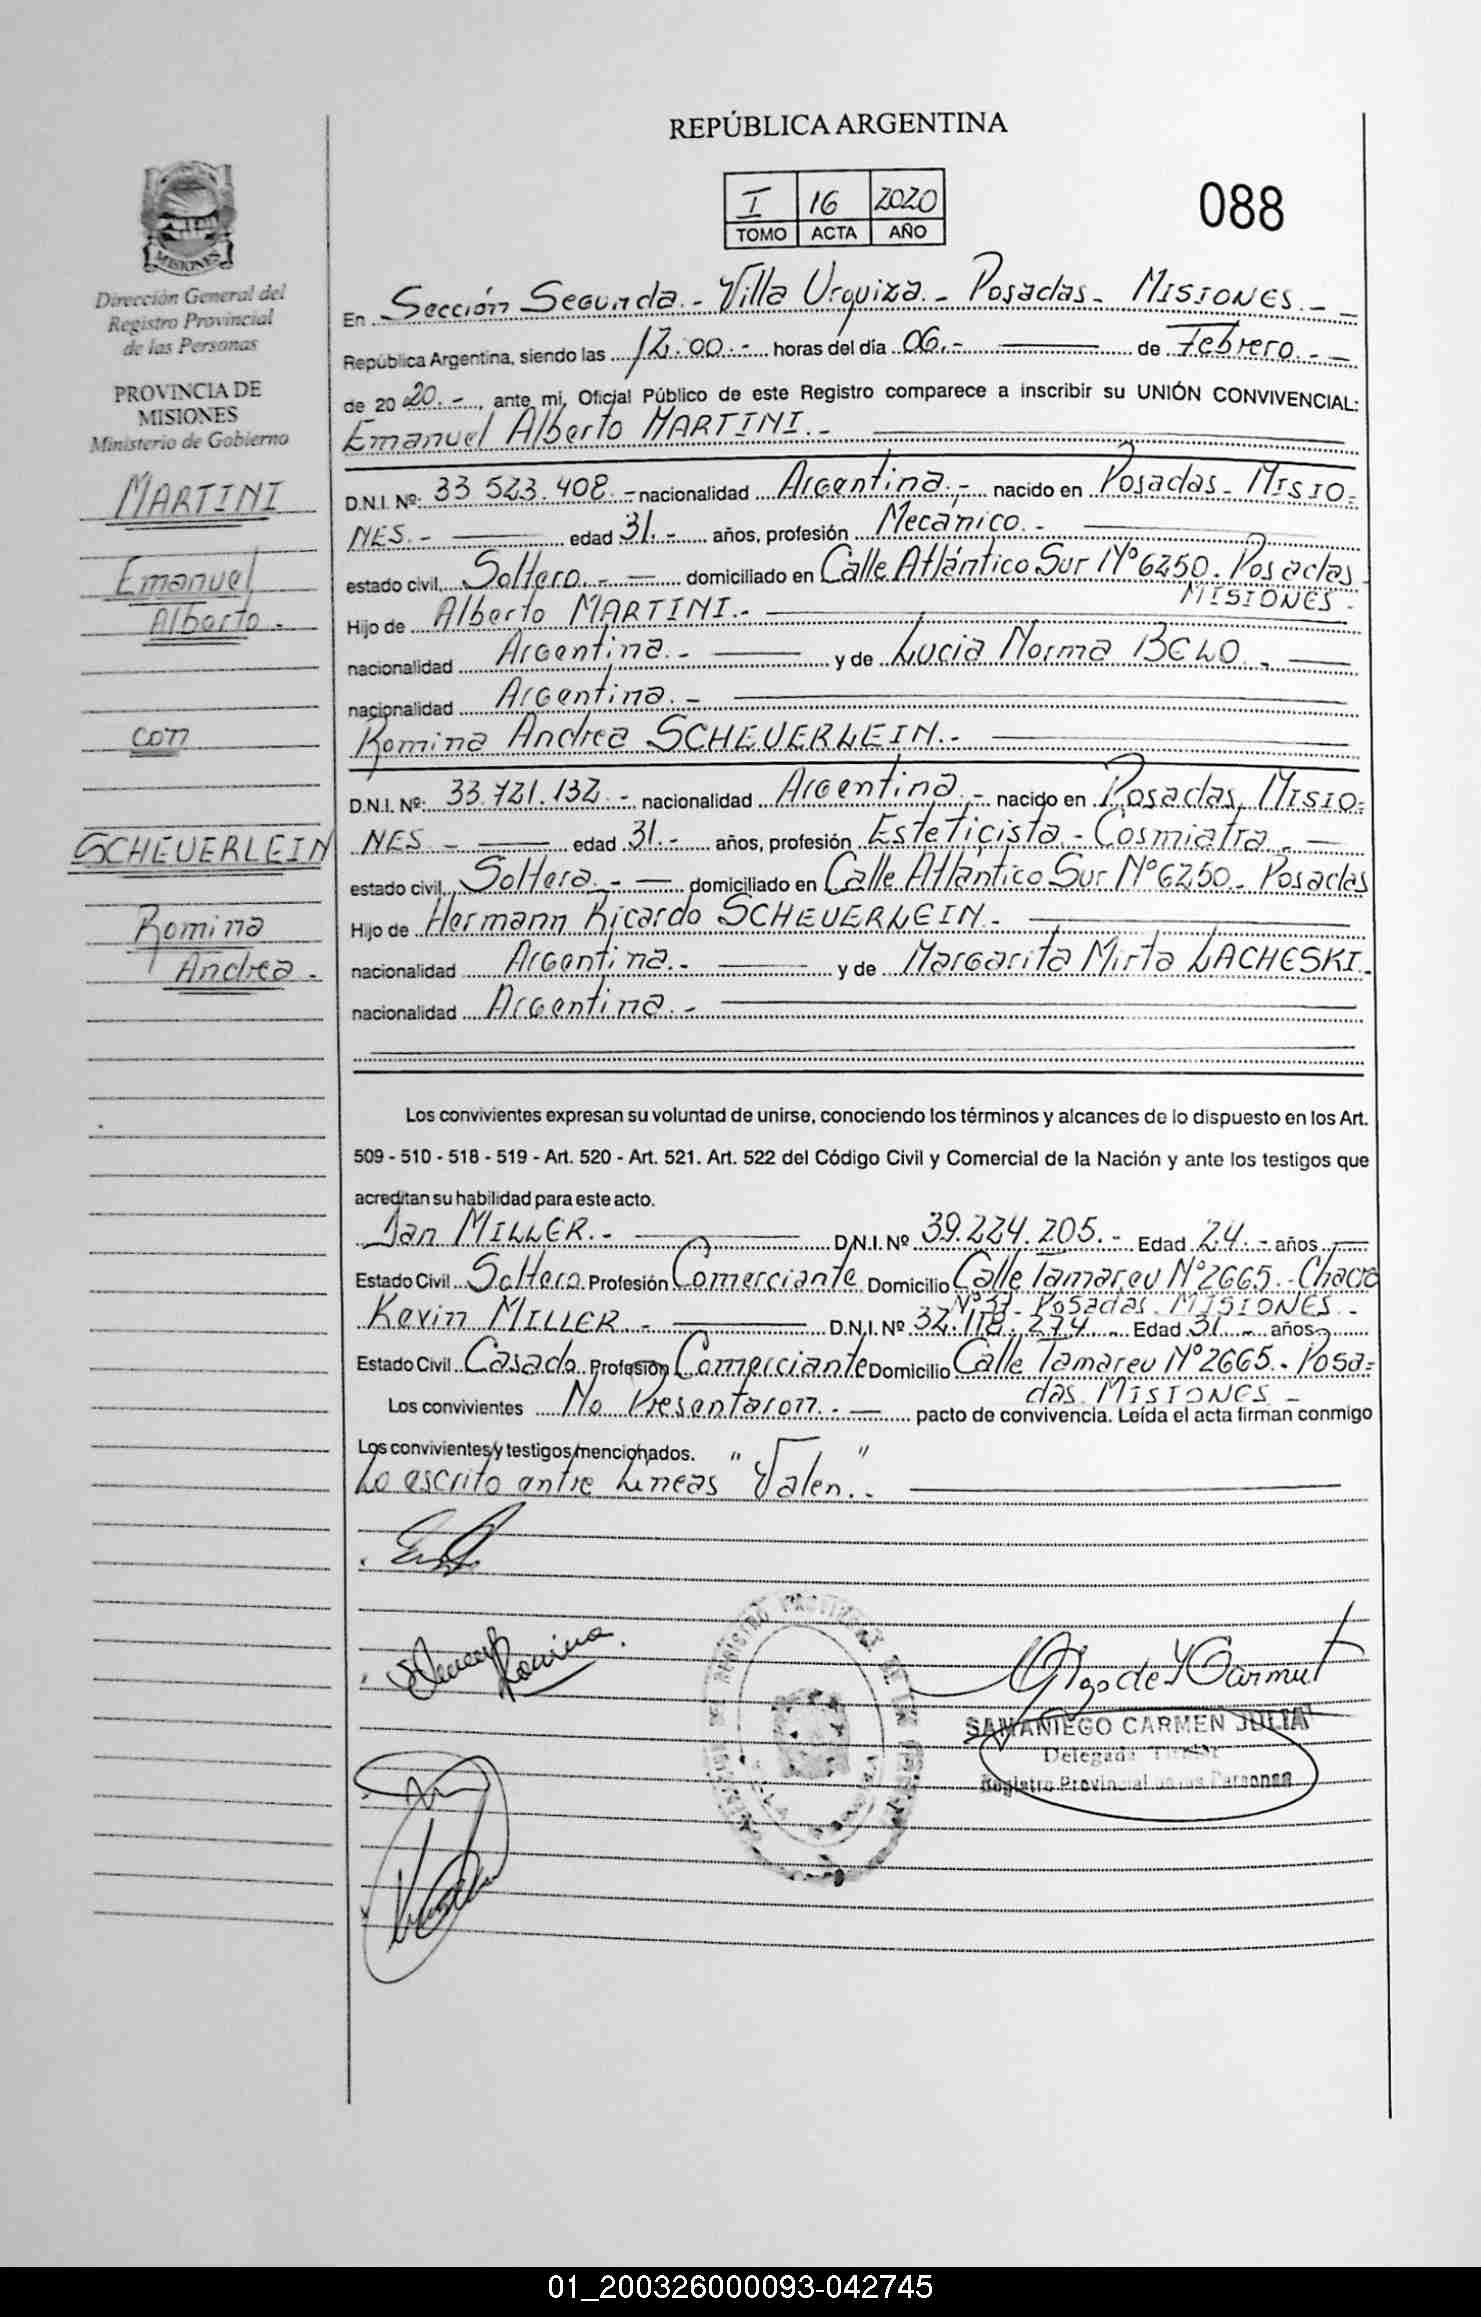 REPÚBLICA ARGENTINA
I 16 2020
TOMO ACTA AÑO
088
MISIONES
Dirección General del
Registro Provincial
de las Personas
PROVINCIA DE
MISIONES
Ministerio de Gobierno
MARTINI
Emanuel
Alberto.-
con
SCHEUERLEIN
Romina
Andrea.-
En Sección Segunda.- Villa Urquiza.- Posadas- MISIONES.--
República Argentina, siendo las 12.00.- horas del día 06.- de Febrero.--
de 2020.-, ante mi, Oficial Público de este Registro comparece a inscribir su UNIÓN CONVIVENCIAL:
Emanuel Alberto MARTINI.-
D.N.I. Nº: 33 523.408.- nacionalidad Argentina.- nacido en Posadas- MISIO=
NES.- edad 31.- años, profesión Mecánico.-
estado civil, Soltero.- domiciliado en Calle Atlántico Sur Nº 6250. Posadas
MISIONES-
Hijo de Alberto MARTINI.-
nacionalidad Argentina.- y de Lucia Norma BELO.-
nacionalidad Argentina.-
Romina Andrea SCHEUERLEIN.-
D.N.I. Nº: 33.721.132.- nacionalidad Argentina.- nacido en Posadas, MISIO=
NES.- edad 31.- años, profesión Esteticista.- Cosmiatra.-
estado civil, Soltera.- domiciliado en Calle Atlántico Sur Nº 6250.- Posadas
Hijo de Hermann Ricardo SCHEUERLEIN.-
nacionalidad Argentina.- y de Margarita Mirta LACHESKI.
nacionalidad Argentina.-
Los convivientes expresan su voluntad de unirse, conociendo los términos y alcances de lo dispuesto en los Art.
509 - 510 - 518 - 519 - Art. 520 - Art. 521. Art. 522 del Código Civil y Comercial de la Nación y ante los testigos que
acreditan su habilidad para este acto.
Jan MILLER.- D.N.I. Nº 39.224.205.- Edad 24.- años
Estado Civil Soltero Profesión Comerciante Domicilio Calle Tamareu Nº 2665.- Chacra
Nº 37- Posadas. MISIONES.-
Kevin MILLER.- D.N.I. Nº 32.118.274.- Edad 31.- años
Estado Civil Casado Profesión Comerciante Domicilio Calle Tamareu Nº 2665.- Posa=
das. MISIONES-
Los convivientes No Presentaron.- pacto de convivencia. Leída el acta firman conmigo
Los convivientes y testigos mencionados.
Lo escrito entre Lineas "Valen."-
Romina
SAMANIEGO CARMEN JULIA
Delegada Titular
Registro Provincial de las Personas
01_200326000093-042745